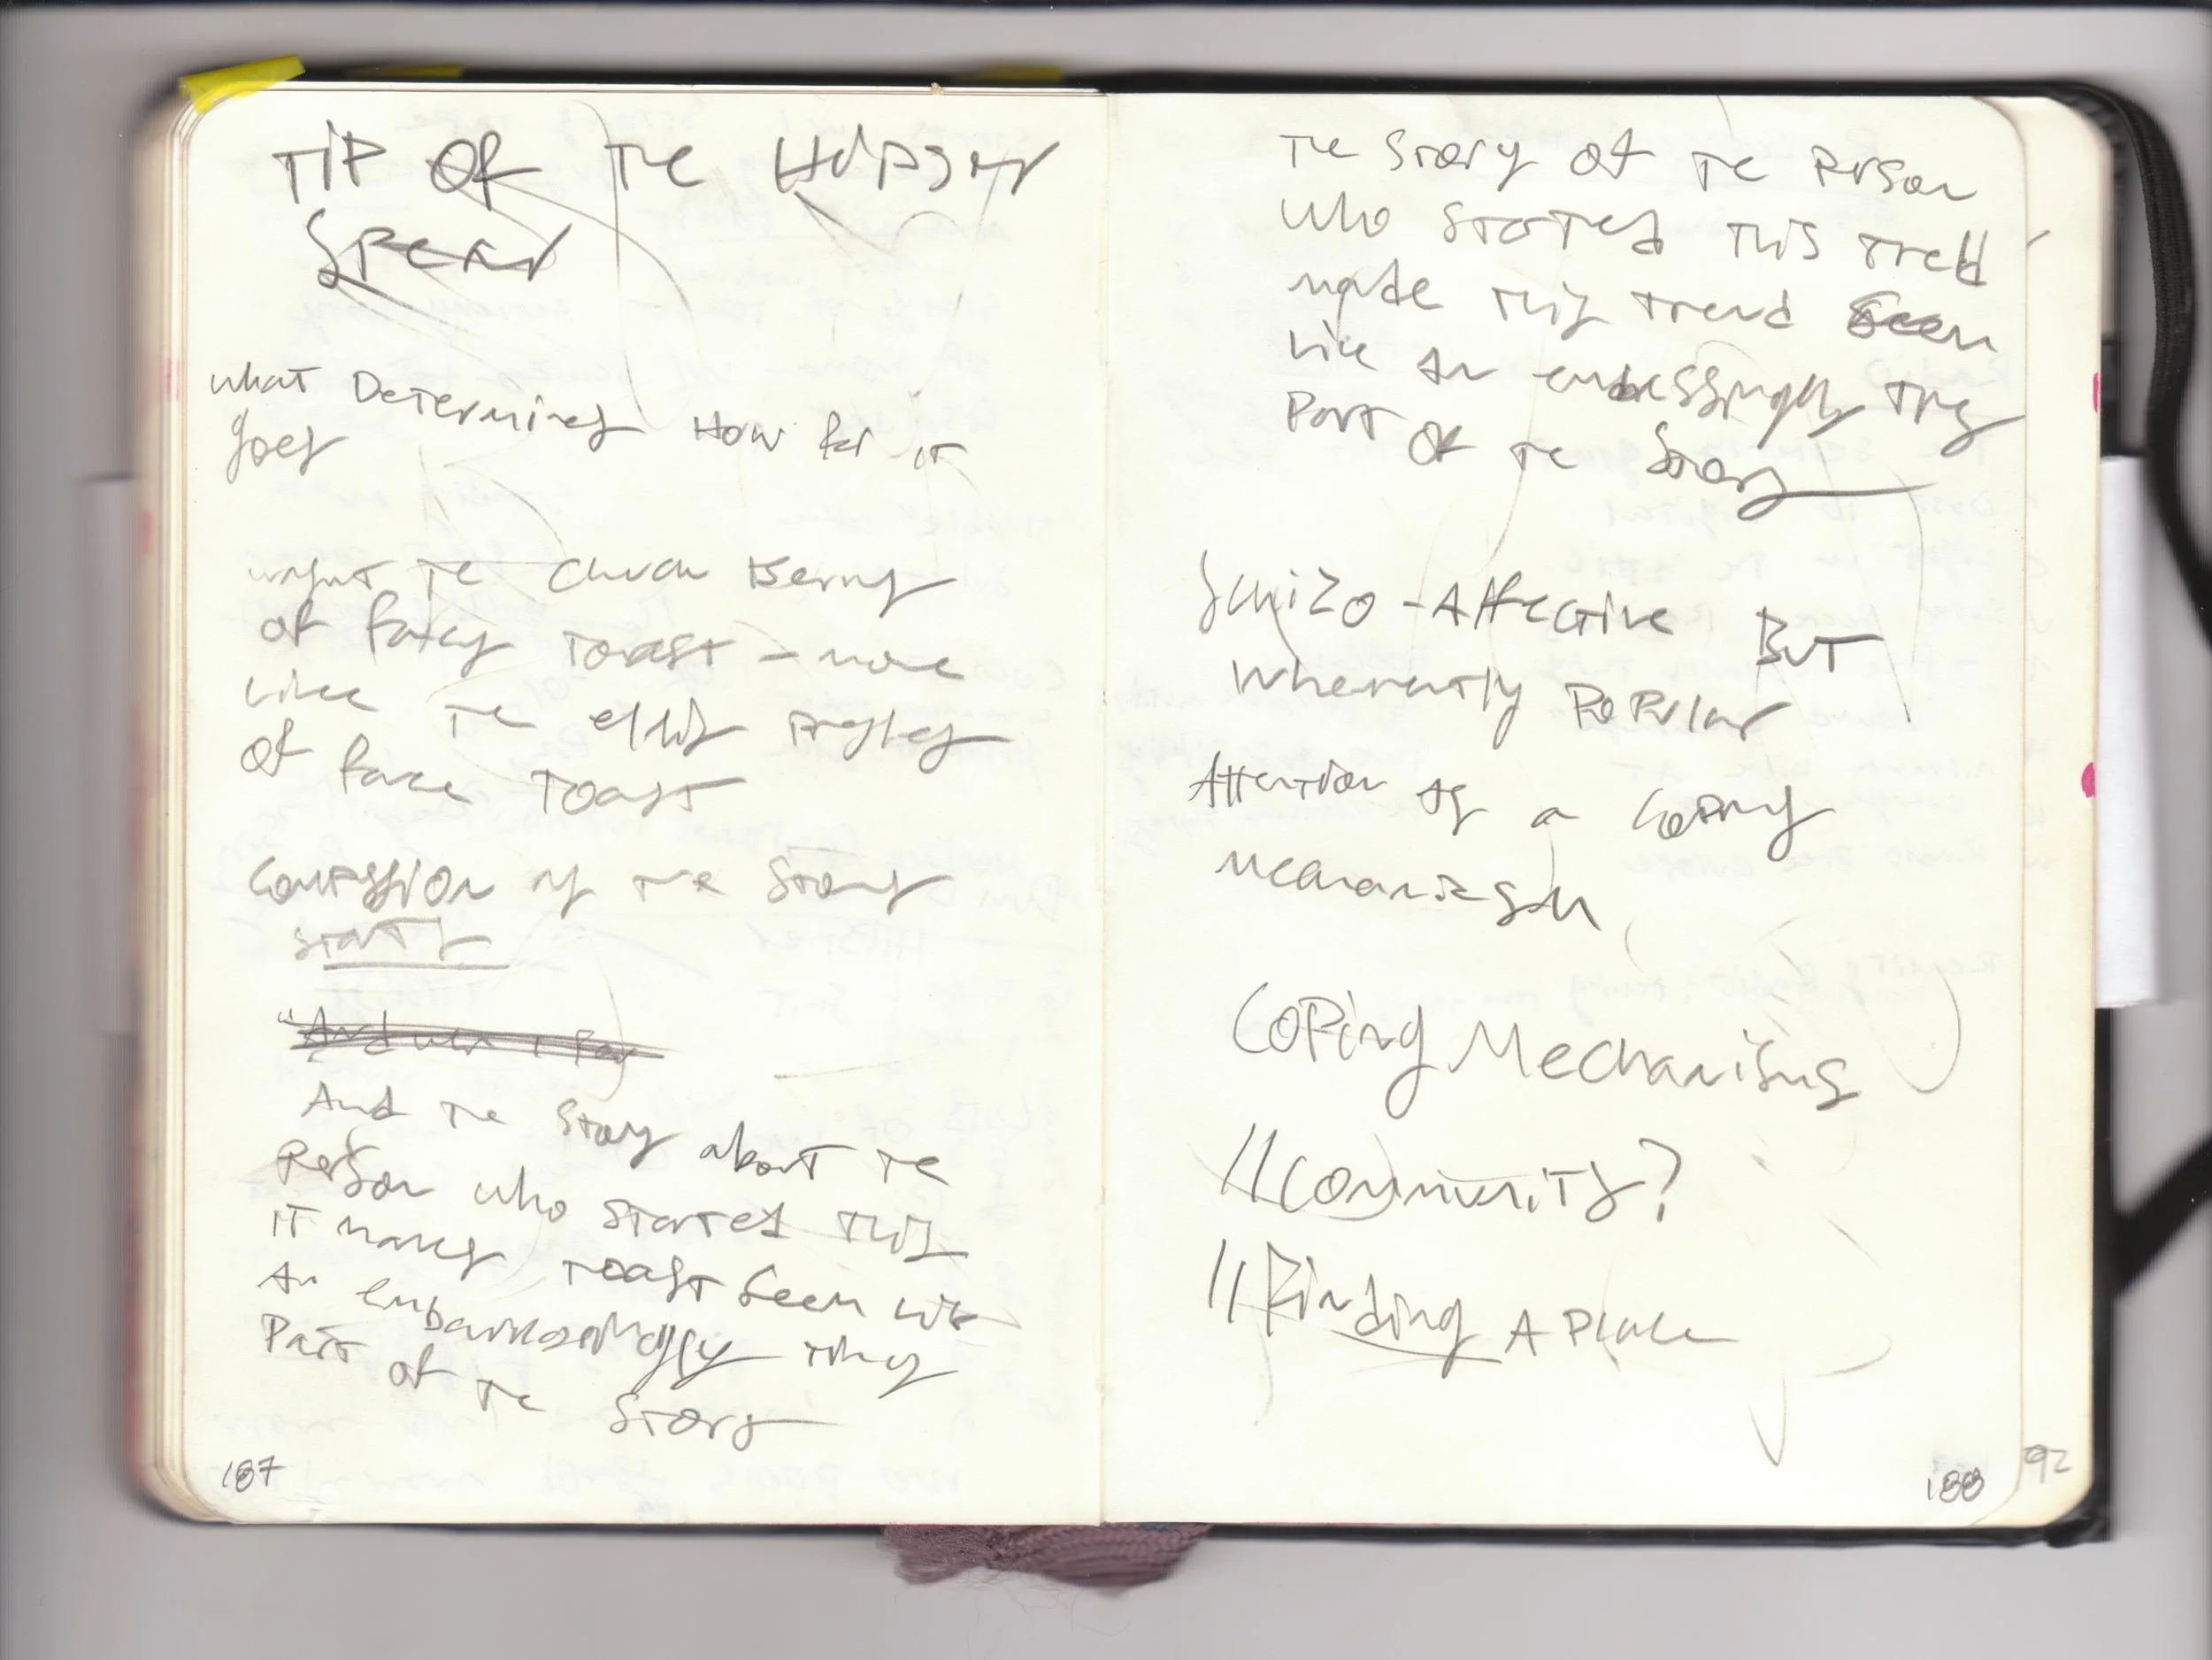 TIP Of THE HIPSTER
SPEAR
what Determines How far it
goes
wasn't THE Chuck Berry
of fancy Toast - more
like THE elvis presley
of fance Toast
of THE story
starts
"And when i
And THE Story about THE
Person who started This
IT makes Toast seem like
An embarrassingly tiny
Part of THE Story
187
THE Story of THE Person
who started This trend
made This trend seem
like An embarrassingly tiny
Part of THE Story
Schizo-Affective BUT
Inherently PoPular
Attention As a Coping
mechanism
COPing Mechanisms
//Community?
//Finding A Place
188
92